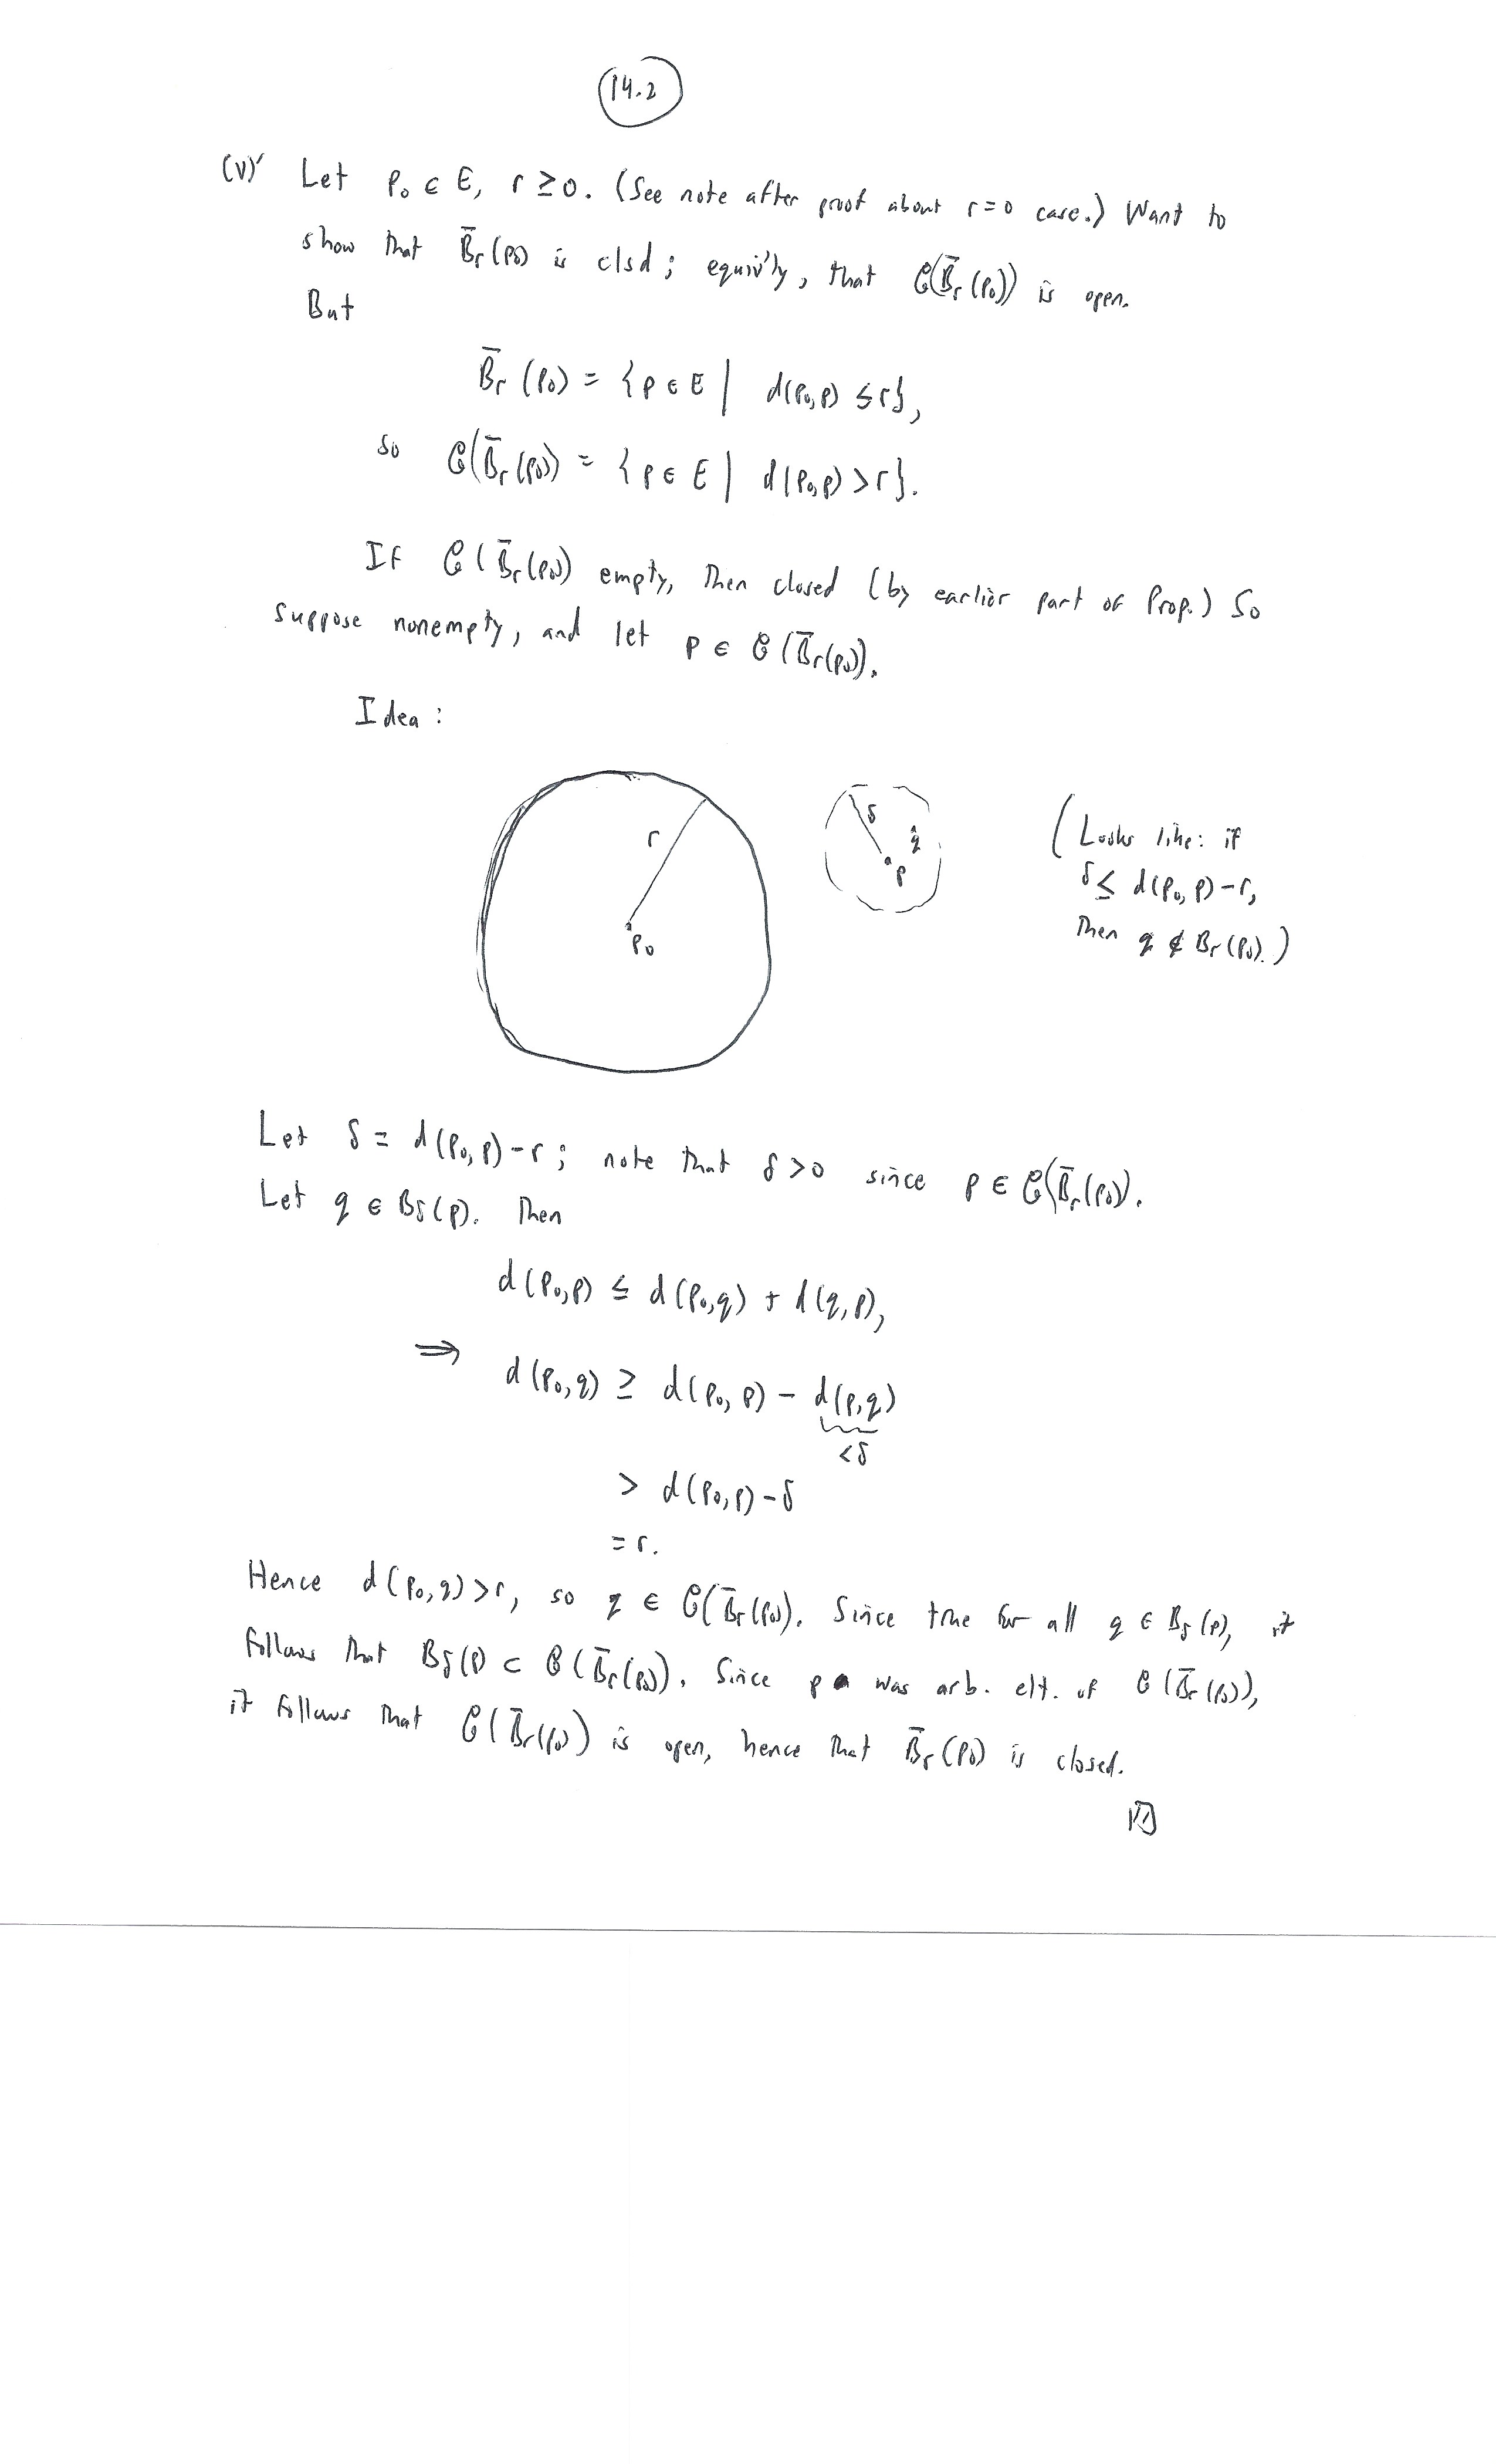 14.2
(v)' Let p₀ ∈ E, r ≥ 0. (See note after proof about r=0 case.) Want to
show that B̄ᵣ(p₀) is clsd; equiv'ly, that 𝒞(B̄ᵣ(p₀)) is open.
But
B̄ᵣ(p₀) = {p ∈ E | d(p₀,p) ≤ r},
so 𝒞(B̄ᵣ(p₀)) = {p ∈ E | d(p₀,p) > r}.
If 𝒞(B̄ᵣ(p₀)) empty, then closed (by earlier part of Prop.) So
suppose nonempty, and let p ∈ 𝒞(B̄ᵣ(p₀)).
Idea:
r
p₀
δ
q
p
(Looks like: if
δ ≤ d(p₀, p) - r,
then q ∉ Bᵣ(p₀).)
Let δ = d(p₀,p) - r; note that δ > 0 since p ∈ 𝒞(B̄ᵣ(p₀)).
Let q ∈ B_δ(p). Then
d(p₀,p) ≤ d(p₀,q) + d(q,p),
⇒ d(p₀,q) ≥ d(p₀, p) - d(p,q)
<δ
> d(p₀,p) - δ
= r.
Hence d(p₀,q) > r, so q ∈ 𝒞(B̄ᵣ(p₀)). Since true for all q ∈ B_δ(p), it
follows that B_δ(p) ⊂ 𝒞(B̄ᵣ(p₀)). Since p was arb. elt. of 𝒞(B̄ᵣ(p₀)),
it follows that 𝒞(B̄ᵣ(p₀)) is open, hence that B̄ᵣ(p₀) is closed.